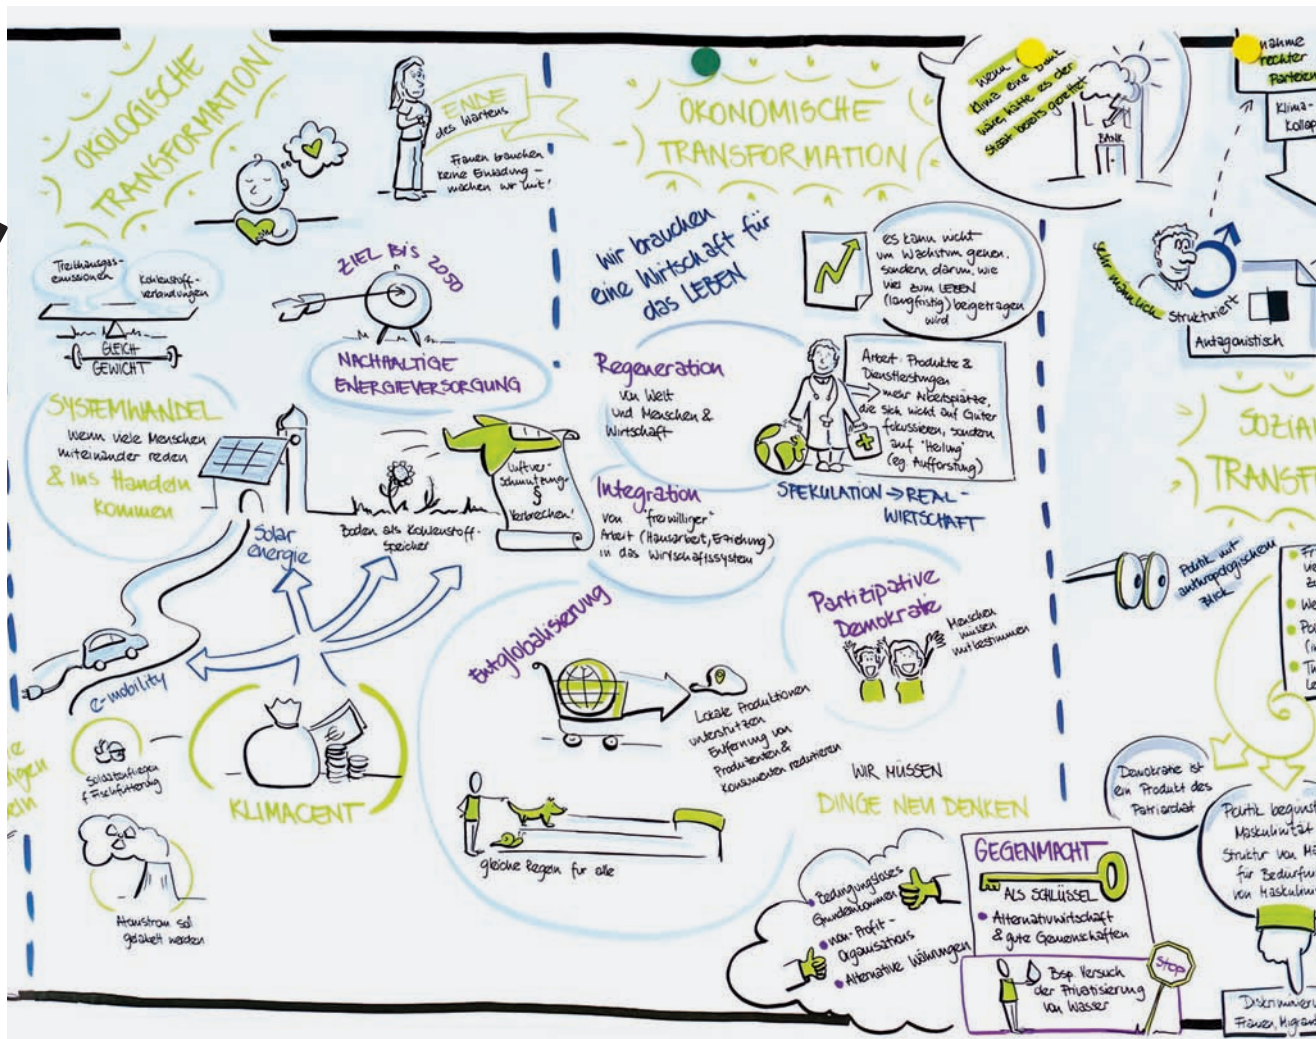 ÖKOLOGISCHE
TRANSFORMATION
ENDE
des Wartens
Frauen brauchen
keine Einladung –
machen wir mit!
Treibhausgas-
emissionen
Kohlenstoff-
verbindungen
GLEICH
GEWICHT
ZIEL BIS 2050
NACHHALTIGE
ENERGIEVERSORGUNG
SYSTEMWANDEL
Wenn viele Menschen
miteinander reden
& ins Handeln
kommen
Solar
energie
Boden als Kohlenstoff-
speicher
Luftver-
schmutzung
§
Verbrechen!
e-mobility
Soldatenfliegen
f Fischfütterung
KLIMACENT
Atomstrom soll
gelabelt werden
ÖKONOMISCHE
TRANSFORMATION
wir brauchen
eine Wirtschaft für
das LEBEN
es kann nicht
um Wachstum gehen,
sondern darum, wie
viel zum LEBEN
(langfristig) beigetragen
wird
Regeneration
von Welt
und Menschen &
Wirtschaft
Arbeit: Produkte &
Dienstleistungen
mehr Arbeitsplätze,
die sich nicht auf Güter
fokussieren, sondern
auf "Heilung"
(eg. Aufforstung)
SPEKULATION → REAL-
WIRTSCHAFT
Integration
von "freiwilliger"
Arbeit (Hausarbeit, Erziehung)
in das Wirtschaftssystem
Entglobalisierung
Lokale Produktionen
unterstützen
Entfernung von
Produzenten &
Konsumenten reduzieren
gleiche Regeln für alle
Partizipative
Demokratie
Menschen
müssen
mitbestimmen
WIR MÜSSEN
DINGE NEU DENKEN
Bedingungsloses
Grundeinkommen
non-Profit-
Organisations
Alternative Währungen
GEGENMACHT
ALS SCHLÜSSEL
Alternativwirtschaft
& gute Gemeinschaften
Bsp. Versuch
der Privatisierung
von Wasser
STOP
Wenn
Klima eine Bank
wäre, hätte es der
Staat bereits gerettet
BANK
nahme
rechter
Parteien
Klima-
Kollap
sehr männlich
strukturiert
Antagonistisch
SOZIA
TRANSF
Politik mit
anthropologischem
Blick
Demokratie ist
ein Produkt des
Patriarchat
Politik begünst
Maskulinität
Struktur von Mä
für Bedürfni
von Maskulini
Diskriminieru
Frauen, Migran